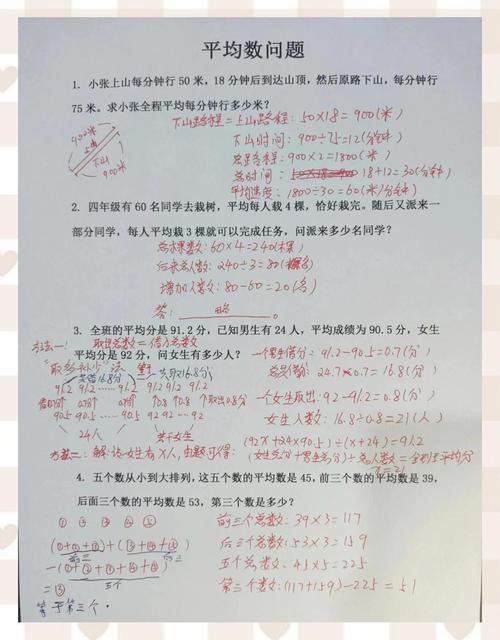 平均数问题
1. 小张上山每分钟行 50 米，18 分钟后到达山顶，然后原路下山，每分钟行
75 米。求小张全程平均每分钟行多少米？
下山路程=上山路程: 50×18=900(米)
下山时间: 900÷75=12(分钟)
总路程: 900×2=1800(米)
总时间: 18+12=30(分钟)
平均速度: 1800÷30=60(米/分钟)
900米
上山
下山
900米
2. 四年级有 60 名同学去栽树，平均每人栽 4 棵，恰好栽完。随后又派来一
部分同学，每人平均栽 3 棵就可以完成任务，问派来多少名同学？
总棵数: 60×4=240(棵)
后来总人数: 240÷3=80(名)
增加人数: 80-60=20(名)
答: 略。
3. 全班的平均分是 91.2 分，已知男生有 24 人，平均成绩为 90.5 分，女生
平均分是 92 分，问女生有多少人？
方法一: 取出总数=借入总数
"取多补少"法
共借16.8分
共取16.8分
91.2 91.2 …… 91.2 91.2 91.2 91.2
借0.7分 0.7分 0.7分 0.8 0.8 取出0.8分
90.5 90.5 …… 90.5 92 92 … 92
24人
若干女生
一个男生借分: 91.2-90.5=0.7(分)
总共借分: 24×0.7=16.8(分)
一个女生取出: 92-91.2=0.8(分)
女生人数: 16.8÷0.8=21(人)
(92x+24×90.5)÷(x+24)=91.2
方法二: 解: 设女生有x人, 由题可得: (女生总分+男生总分)÷总人数=全班平均分
x=21
4. 五个数从小到大排列，这五个数的平均数是 45，前三个数的平均数是 39，
后面三个数的平均数是 53，第三个数是多少？
① ② ③ ④ ⑤
(①+②+③)+(③+④+⑤)
前三 后三
-(①+②+③+④+⑤)
五个
=③
等于第三个.
前三个总数: 39×3=117
后三个总数: 53×3=159
五个总数: 45×5=225
第三个数: (117+159)-225=51